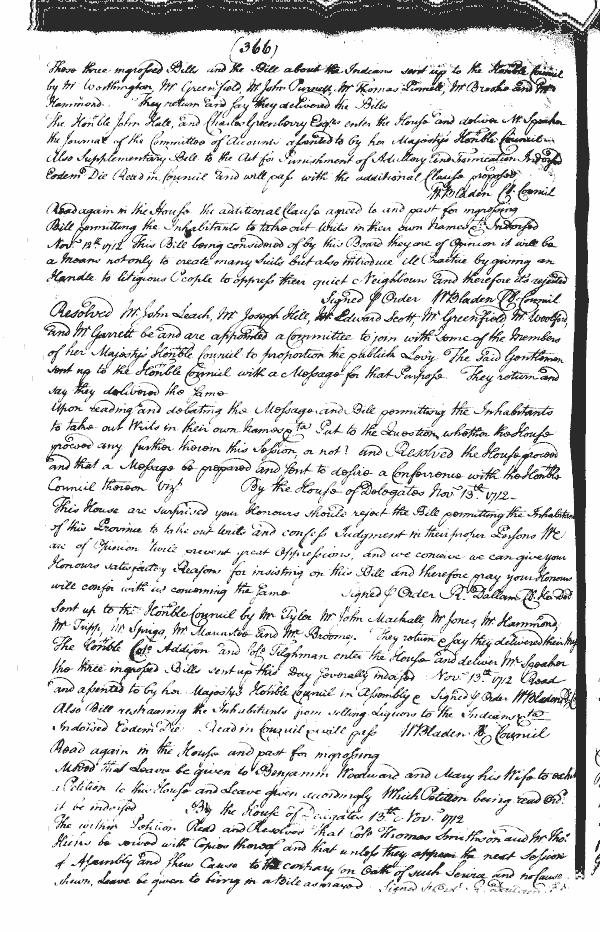 (366)
Those three ingrossed Bills and the Bill about the Indians sent up to the Honble Council
by Mr Worthington, Mr Greenfield, Mr John Purnell, Mr Thomas Mr Brooke and Mr
Hammond. They return and say they delivered the Bills
The Honble John Hall, and Charles Greenberry Esqrs enter the House and deliver Mr Speaker
the Journal of the Committee of Accounts assented to by her Majestys Honble Council
Also Supplementary Bill to the Act for Punishment of Adultery and Fornication Indorsd
Eodem Die Read in Council and will pass with the additional Clause proposed
WBladen Cl Council
Read again in the House the additional Clause agreed to and past for ingrossing
Bill permitting the Inhabitants to take out Writs in their own Names &c Indorsed
Novr 12th 1712 This Bill being considered of by this Board they are of Opinion it will be
a Means not only to create many Suits but also introduce ill Practice by giving an
Handle to letigious People to oppress their quiet Neighbours and therefore its rejected
Signed p Order WBladen Cl Council
Resolved Mr John Leach, Mr Joseph Hill, Mr Edward Scott, Mr Greenfield, Mr Woolford,
and Mr Garrett be and are appointed a Committee to join with some of the Members
of her Majestys Honble Council to proportion the publick Levy. The said Gentlemen
sent up to the Honble Council with a Message for that Purpose. They return and
say they delivered the same
Upon reading and debating the Message and Bill permitting the Inhabitants
to take out Writs in their own names Put to the Question, whether the House
proceed any further therein this Session, or not? and Resolved the House proceed
and that a Message be prepared and sent to desire a Conferrence with the Honble
Council thereon Vizt By the House of Delegates Novr 13th 1712
This House are surprised your Honours should reject the Bill permitting the Inhabitants
of this Province to take out Writs and confess Judgment in their proper Persons We
are of Opinion twill prevent great Oppressions, and we conceive we can give your
Honours satisfactory Reasons for insisting on this Bill and therefore pray your Honours
will confer with us concerning the same Signed p Order R Dallam Cl Ho Del
Sent up to the Honble Council by Mr Tyler Mr John Mackall, Mr Jones, Mr Hammond,
Mr Tripp, Mr Sprigg, Mr and Mr Broome. They return & say they delivered their
The Honble Colo Addison and Colo Tilghman enter the House and deliver Mr Speaker
the three ingrossed Bills sent up this Day severally indorsd Novr 13th 1712 Read
and assented to by her Majestys Honble Council in Assembly & Signed p Order WBladen Cl C
Also Bill restraining the Inhabitants from selling Liquors to the Indians
Indorsed Eodem Die Read in Council & will pass WBladen Cl Council
Read again in the House and past for ingrossing
Moved that Leave be given to Benjamin Woodward and Mary his Wife to
a Petition to this House and Leave given accordingly Which Petition being read Ordd
it be indorsed By the House of Delegates 13th Novr 1712
The within Petition Read and Resolved that Colo Thomas Smithson and Mr Thos
Heirs be served with Copies thereof and that unless they appear the next Session
of Assembly and shew Cause to the contrary on Oath of such Service and no Cause
shewn, Leave be given to bring in a Bill as prayed Signed p Ordr